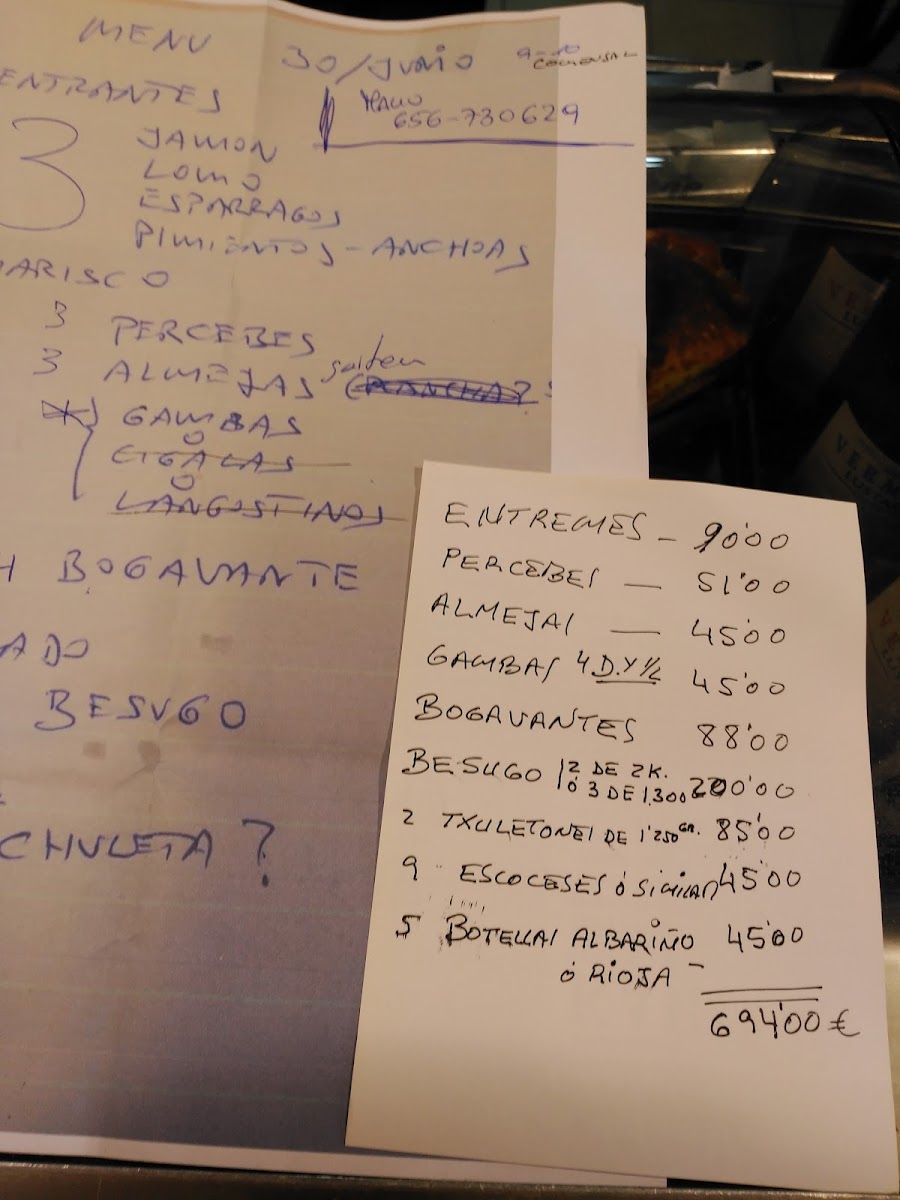 MENU
30/JUNIO
9-10
COMENSAL
656-730629
ENTRANTES
3
JAMON
LOMO
ESPARRAGOS
PIMIENTOS-ANCHOAS
MARISCO
3 PERCEBES
3 ALMEJAS
GAMBAS
Ó
CIGALAS
Ó
LANGOSTINOS
BOGAVANTE
ADO
BESUGO
CHULETA?
ENTREMES - 90'00
PERCEBES — 51'00
ALMEJAS — 45'00
GAMBAS 4 D.Y 1/2 45'00
BOGAVANTES 88'00
BESUGO 2 DE 2K. 200'00
Ó 3 DE 1.300
2 TXULETONES DE 1'250 GR. 85'00
9 ESCOCESES Ó SIMILAR 45'00
5 BOTELLAS ALBARIÑO 45'00
Ó RIOJA -
694'00 €